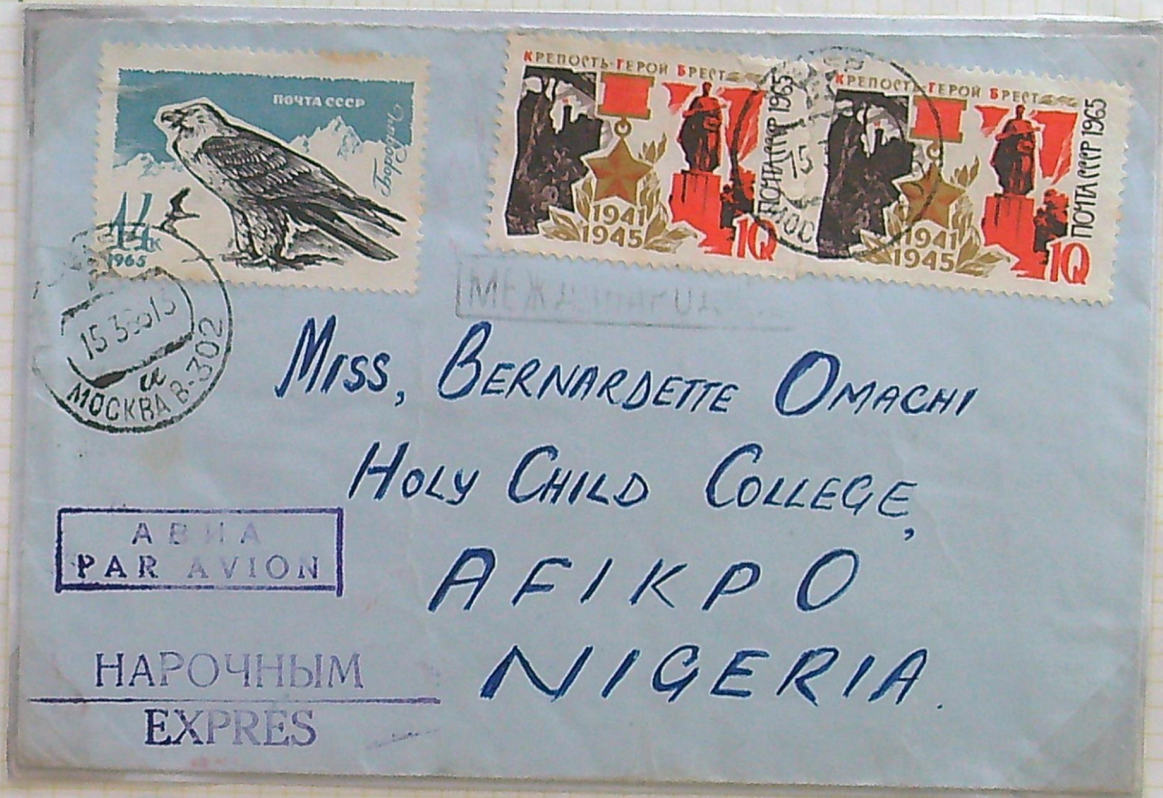 ПОЧТА СССР
Бородач
14 К
1965
КРЕПОСТЬ-ГЕРОЙ БРЕСТ
1941
1945
ПОЧТА СССР 1965
10
КРЕПОСТЬ-ГЕРОЙ БРЕСТ
1941
1945
ПОЧТА СССР 1965
10
МОСКВА В-302
MISS, BERNARDETTE OMACHI
HOLY CHILD COLLEGE,
AFIKPO
NIGERIA.
АВИА
PAR AVION
НАРОЧНЫМ
EXPRES